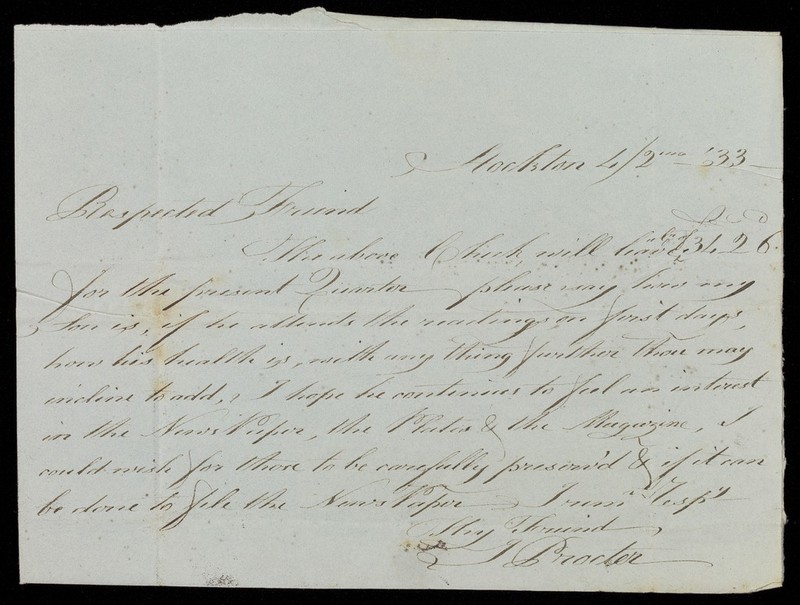 Stockton 4/2mo '33
Respected Friend
£ s D
The above Check will leave bal of 3 4 26.
for the present Quarter please say how my
Son is, if he attends the readings on first days,
how his health is, with any thing further thou may
incline to add, I hope he continues to feel an interest
in the News Paper, the Plates & the Magazine, I
could wish for those to be carefully preserv'd & if it can
be done to file the News Paper I rem Resp'y
Thy Friend
J Procter